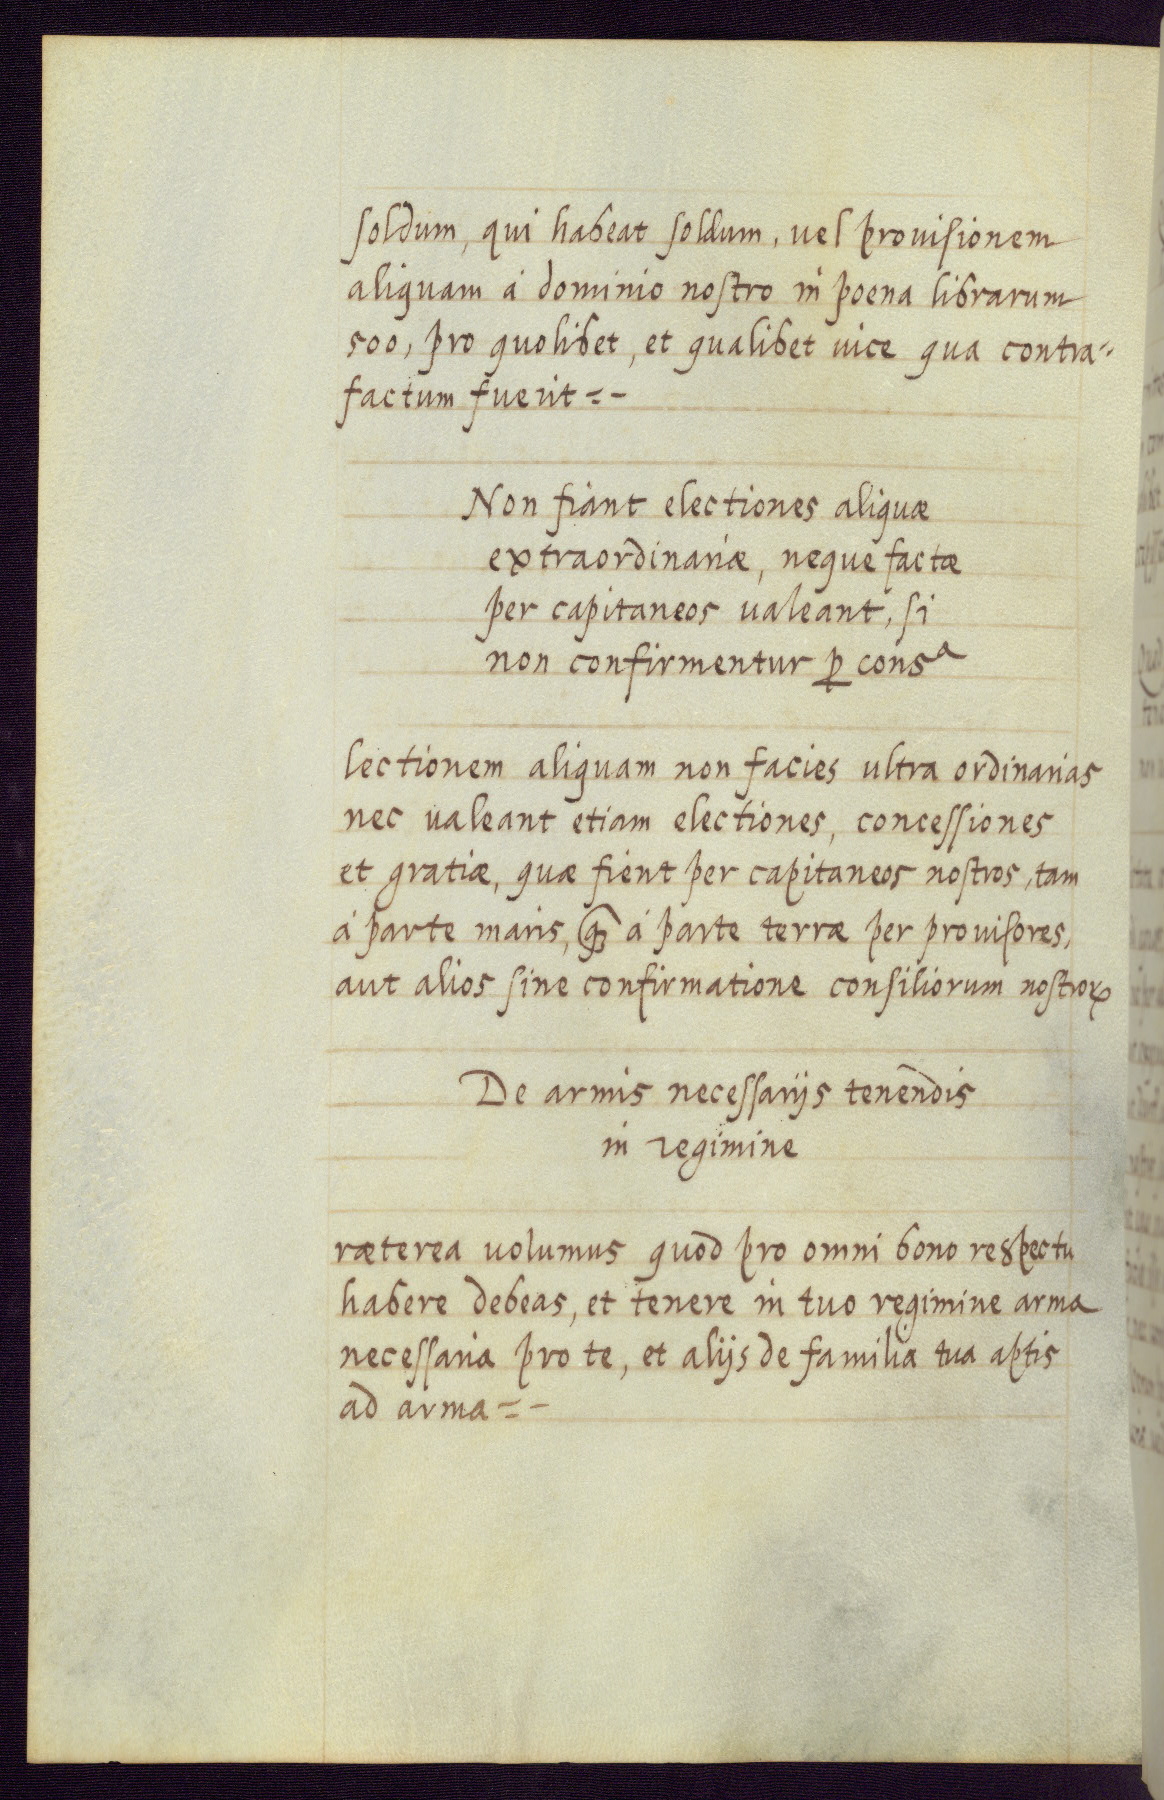 soldum, qui habeat soldum, uel prouisionem
aliquam á dominio nostro in poena librarum
500, pro quolibet, et qualibet uice qua contra=
factum fuerit=-
Non fiant electiones aliquæ
extraordinariæ, neque factæ
per capitaneos ualeant, si
non confirmentur ꝑ consᵃ
lectionem aliquam non facies ultra ordinarias
nec ualeant etiam electiones, concessiones
et gratiæ, quæ fient per capitaneos nostros, tam
á parte maris, á parte terræ per prouisores,
aut alios sine confirmatione consiliorum nostroꝝ
De armis necessarijs tenendis
in regimine
ræterea uolumus quod pro omni bono respectu
habere debeas, et tenere in tuo regimine arma
necessaria pro te, et alijs de familia tua aptis
ad arma=-